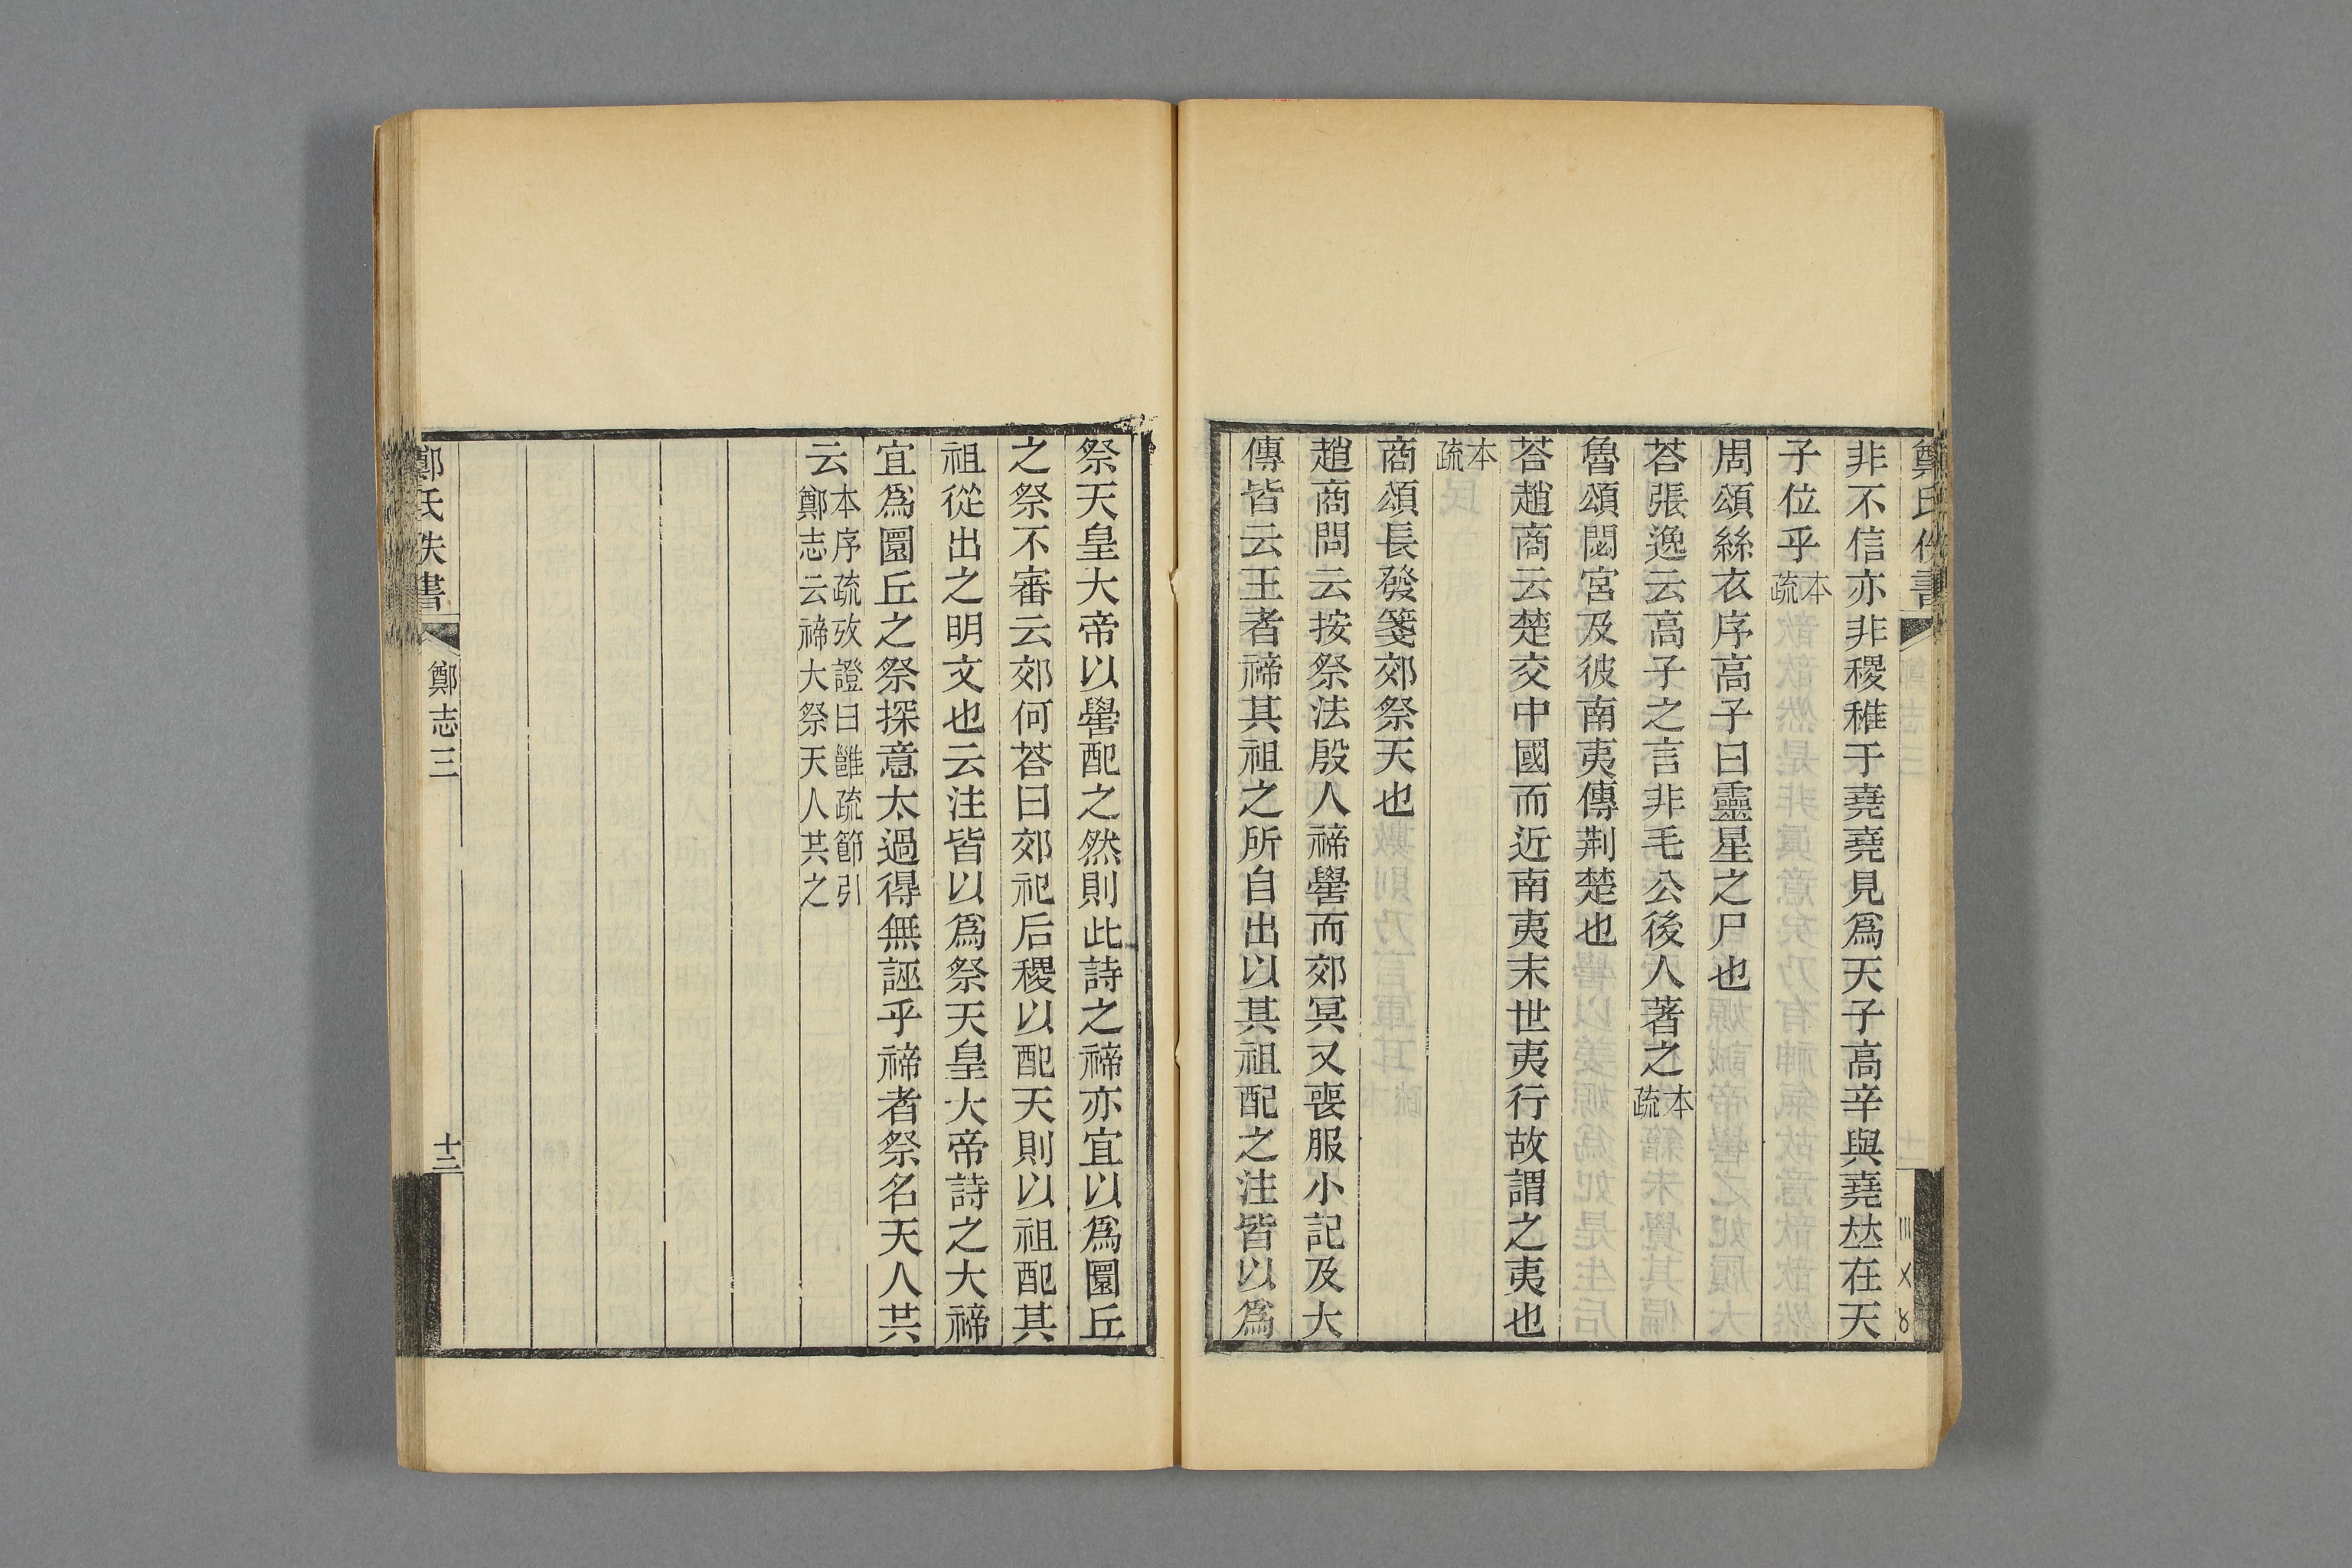 非不信亦非稷稚于堯堯見爲天子高辛與堯竝在天
子位乎本疏
周頌絲衣序高子曰靈星之尸也
荅張逸云高子之言非毛公後人著之本疏
魯頌閟宮及彼南夷傳荆楚也
荅趙商云楚交中國而近南夷末世夷行故謂之夷也
本疏
商頌長發箋郊祭天也
趙商問云按祭法殷人禘嚳而郊冥又喪服小記及大
傳皆云王者禘其祖之所自出以其祖配之注皆以爲
祭天皇大帝以嚳配之然則此詩之禘亦宜以爲圜丘
之祭不審云郊何荅曰郊祀后稷以配天則以祖配其
祖從出之明文也云注皆以爲祭天皇大帝詩之大禘
宜爲圜丘之祭探意太過得無誣乎禘者祭名天人共
云本序疏攷證曰雝疏節引
鄭志云禘大祭天人共之
鄭氏佚書
鄭志三
十二